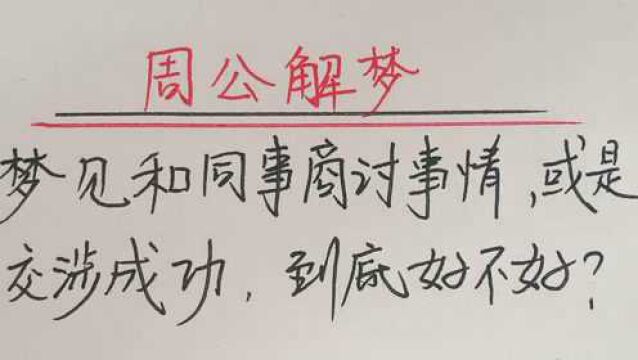 周公解梦
梦见和同事商讨事情,或是
交涉成功,到底好不好?